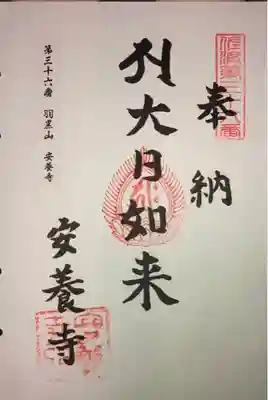 奉納
大日如来
安養寺
第三十六番 羽黒山 安養寺